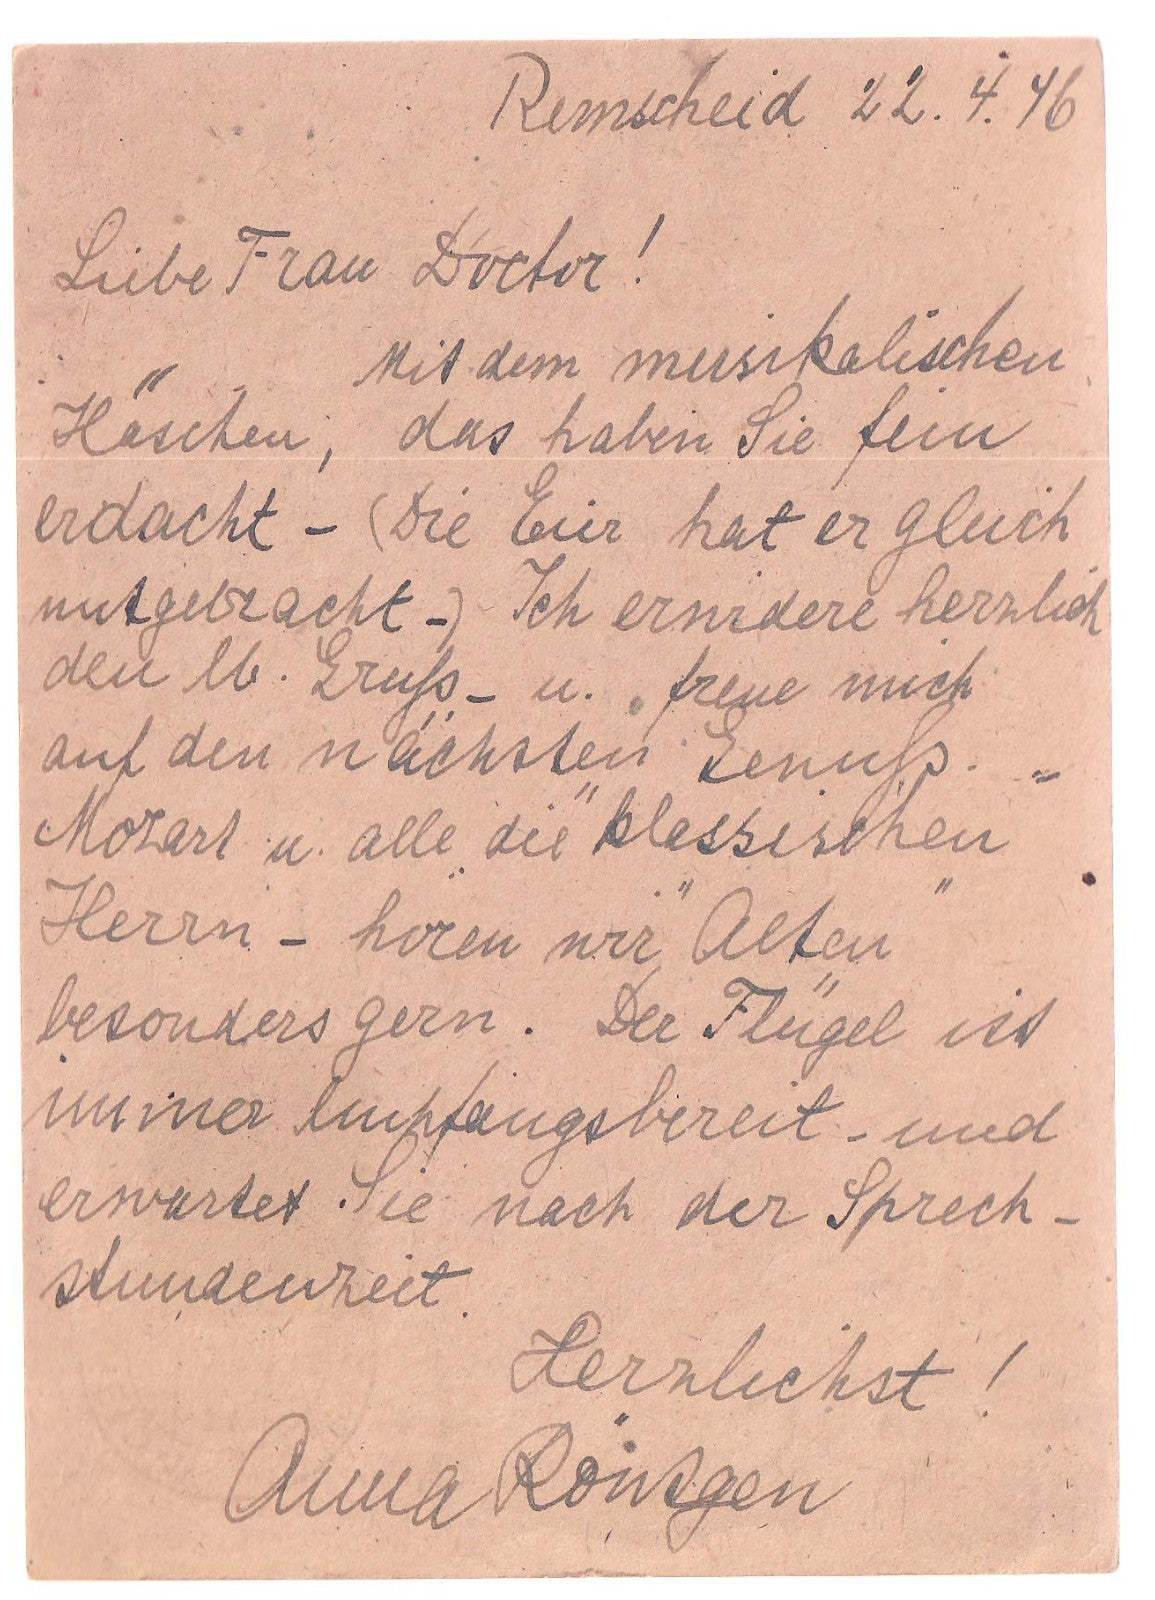 Remscheid 22. 4. 46
Liebe Frau Doctor!
Mit dem musikalischen
Häschen, das haben Sie fein
erdacht – (Die Eier hat er gleich
mitgebracht –) Ich erwidere herzlich
den lb. Gruß – u. freue mich
auf den nächsten Genuß. –
Mozart u. alle die "klassischen"
Herrn – hören wir "Alten"
besonders gern. Der Flügel ist
immer empfangsbereit – und
erwartet Sie nach der Sprech-
stundenzeit.
Herzlichst!
Anna Röntgen